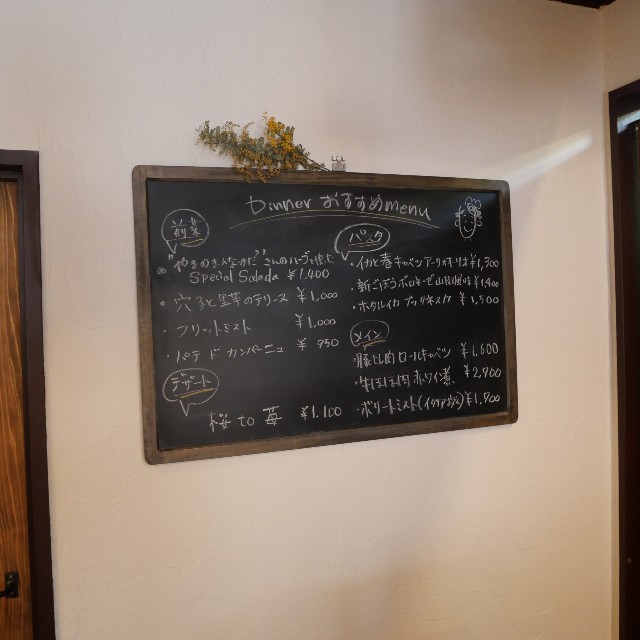 Dinner おすすめmenu
前菜
Special Salada ¥1,400
・穴子と のテリーヌ ¥1,000
・フリットミスト ¥1,000
・パテ ド カンパーニュ ¥950
デザート
桜 to 苺 ¥1.100
パスタ
・イカと春キャベツ アーリオオーリオ ¥1,300
・新ごぼうボロネーゼ 山椒風味 ¥1,400
・ホタルイカ プッタネスカ ¥1,500
メイン
・豚ヒレ肉 ロールキャベツ ¥1,600
・牛ほほ肉 赤ワイン煮 ¥2,700
・ボリートミスト(イタリアおでん)